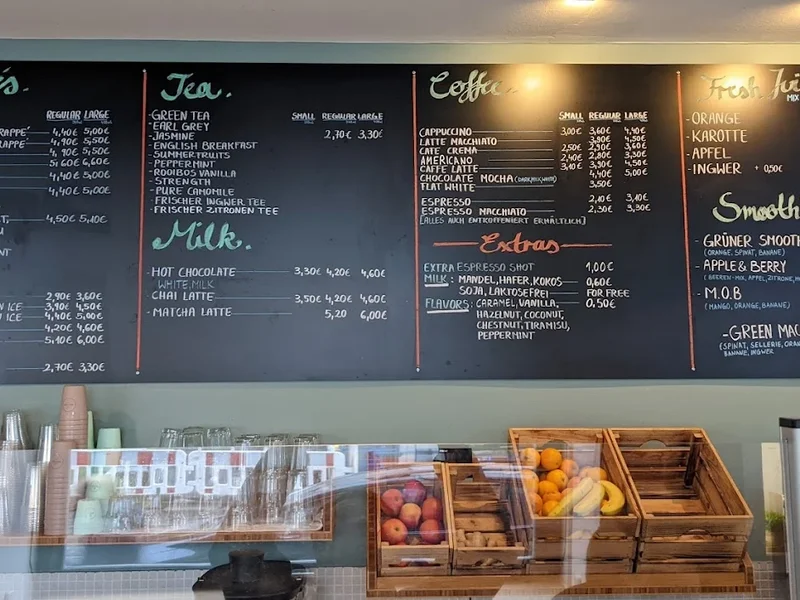 s.
REGULAR LARGE
RAPPÉ 4,40€ 5,00€
RAPPÉ 4,90€ 5,50€
4,90€ 5,50€
5,60€ 6,60€
4,40€ 5,00€
4,40€ 5,00€
4,50€ 5,10€
2,90€ 3,60€
ICE 3,90€ 4,50€
ICE 4,40€ 5,00€
4,20€ 4,60€
5,40€ 6,00€
2,70€ 3,30€
Tea.
SMALL REGULAR LARGE
- GREEN TEA
- EARL GREY
- JASMINE 2,70€ 3,30€
- ENGLISH BREAKFAST
- SUMMERFRUITS
- PEPPERMINT
- ROOIBOS VANILLA
- STRENGTH
- PURE CAMOMILE
- FRISCHER INGWER TEE
- FRISCHER ZITRONEN TEE
Milk.
- HOT CHOCOLATE 3,30€ 4,20€ 4,60€
WHITE, MILK
- CHAI LATTE 3,50€ 4,20€ 4,60€
- MATCHA LATTE 5,20 6,00€
Coffee.
SMALL REGULAR LARGE
CAPPUCCINO 3,00€ 3,60€ 4,40€
LATTE MACCHIATO 3,90€ 4,50€
CAFE CREMA 2,50€ 2,90€ 3,60€
AMERICANO 2,40€ 2,80€ 3,30€
CAFFE LATTE 3,10€ 3,90€ 4,50€
CHOCOLATE MOCHA (DARK, MILK, WHITE) 4,40€ 5,00€
FLAT WHITE 3,50€
ESPRESSO 2,10€ 3,10€
ESPRESSO MACCHIATO 2,30€ 3,30€
[ALLES AUCH ENTKOFFEINIERT ERHÄLTLICH]
Extras
EXTRA ESPRESSO SHOT 1,00€
MILK: MANDEL, HAFER, KOKOS 0,60€
SOJA, LAKTOSEFREI FOR FREE
FLAVORS: CARAMEL, VANILLA, 0,50€
HAZELNUT, COCONUT,
CHESTNUT, TIRAMISU,
PEPPERMINT
Fresh Jui
MIX
- ORANGE
- KAROTTE
- APFEL
- INGWER + 0,50€
Smooth
- GRÜNER SMOOTH
(ORANGE, SPINAT, BANANE)
- APPLE & BERRY
(BEEREN-MIX, APFEL, ZITRONE, H
- M.O.B
(MANGO, ORANGE, BANANE)
- GREEN MAC
(SPINAT, SELLERIE, ORAN
BANANE, INGWER